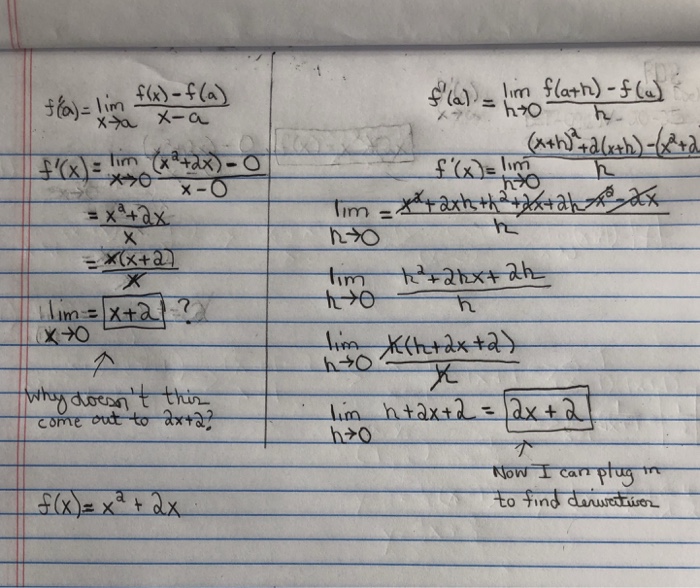 f'(a) = lim x→a f(x) - f(a) / x - a
f'(x) = lim x→0 (x²+2x) - 0 / x - 0
= x²+2x / x
= x(x+2) / x
lim x→0 = x+2 ?
↑
Why doesn't this
come out to 2x+2?
f(x) = x² + 2x
f'(a) = lim h→0 f(a+h) - f(a) / h
f'(x) = lim h→0 (x+h)²+2(x+h) - (x²+2 / h
lim h→0 = x²+2xh+h²+2x+2h-x²-2x / h
lim h→0 h²+2hx+2h / h
lim h→0 h(h+2x+2) / h
lim h→0 h+2x+2 = 2x+2
↑
Now I can plug in
to find derivatives